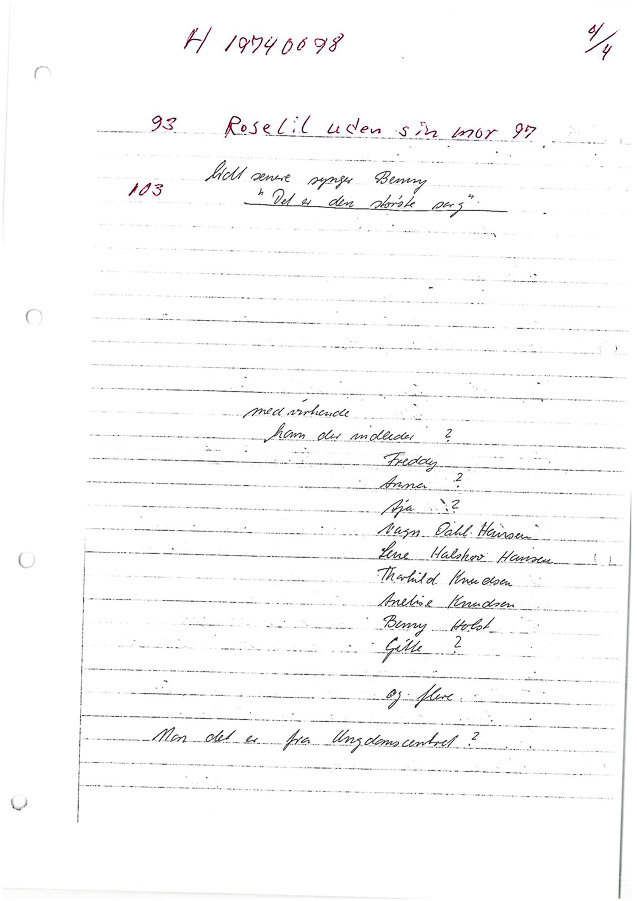 H 19740098
4/4
93 Roselil uden sin mor 97
lidt senere synger Benny
103 "Det er den største sorg".
medvirkende
ham der indleder ?
Freddy
Anna ?
Aja ?
Vagn Dahl Hansen
Lene Halskov Hansen
Thorkild Knudsen
Anelise Knudsen
Benny Holst
Gitte ?
og flere
Mon det er fra Ungdomscentret ?